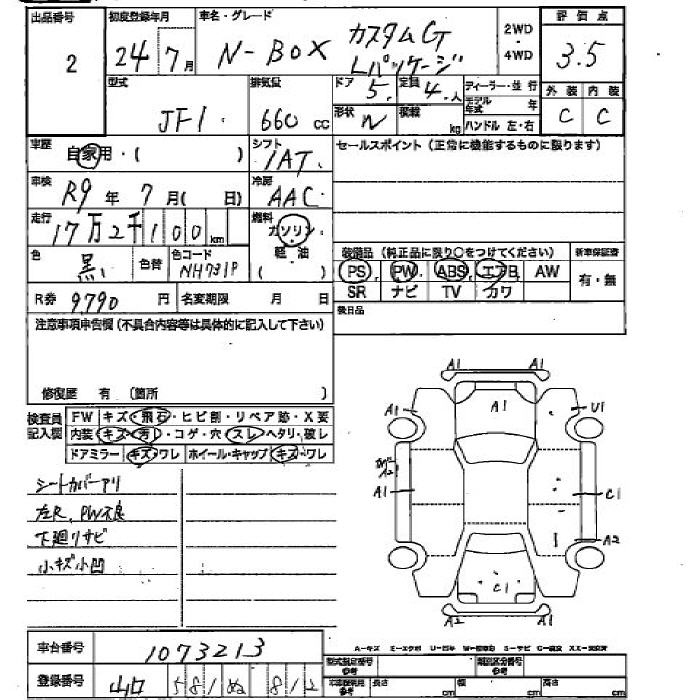 出品番号 初度登録年月 車名・グレード 2WD 4WD 評価点
2 24年7月 N-BOX カスタムG Lパッケージ 3.5
型式 排気量 ドア 定員 ディーラー・並行 外装 内装
JF1 660cc 5 4人 モデル年式 年 C C
形状 N 積載 kg ハンドル 左・右
車歴 自家用・( ) シフト セールスポイント(正常に機能するものに限ります)
IAT
車検 R9年7月( 日) 冷房 AAC
走行 17万2千100km 燃料 ガソリン 軽油 ( )
色 黒 色替 色コード NH731P
装備品(純正品に限り○をつけてください) 新車保証書
PS PW ABS エアB AW 有・無
SR ナビ TV カワ
R券 9790円 名変期限 月 日 後日品
注意事項申告欄(不具合内容等は具体的に記入して下さい)
修復歴 有 (箇所 )
検査員記入欄
FW キズ・飛石・ヒビ割・リペア跡・X要
内装 キズ・汚レ・コゲ・穴・スレ・ヘタリ・破レ
ドアミラー キズ・ワレ ホイール・キャップ キズ・ワレ
シートカバーアリ
左R,PW不良
下廻リサビ
小キズ小凹
A1 A1
A1 A1 U1
A2
A1 C1
A2
C1
A2 A1
車台番号 1073213
型式指定番号 参考 類別区分番号
登録番号 山口 581 ぬ 812
長さ cm 幅 cm 高さ cm